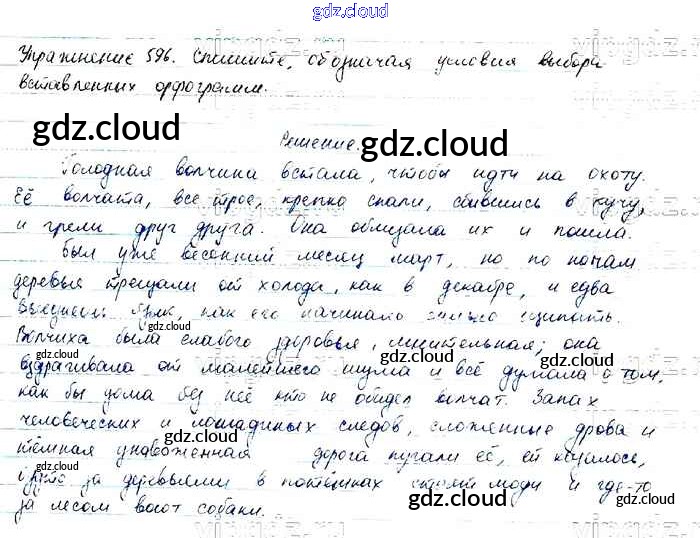 gdz.cloud
Упражнение 596. Спишите, обозначая условия выбора
вставленных орфограмм.
gdz.cloud
Решение.
gdz.cloud
Голодная волчиха встала, чтобы идти на охоту.
Её волчата, все трое, крепко спали, сбившись в кучу,
и грели друг друга. Она облизала их и пошла.
Был уже весенний месяц март, но по ночам
деревья трещали от холода, как в декабре, и едва
высунешь язык, как его начинало сильно щипать.
Волчиха была слабого здоровья, мнительная; она
вздрагивала от малейшего шума и всё думала о том,
как бы дома без неё кто не обидел волчат. Запах
человеческих и лошадиных следов, сложенные дрова и
тёмная унавоженная дорога пугали её, ей казалось,
за деревьями в потёмках стоят люди и где-то
за лесом воют собаки.
gdz.cloud
gdz.cloud
gdz.cloud
gdz.cloud
gdz.cloud
gdz.cloud
gdz.cloud
gdz.cloud
gdz.cloud
gdz.cloud